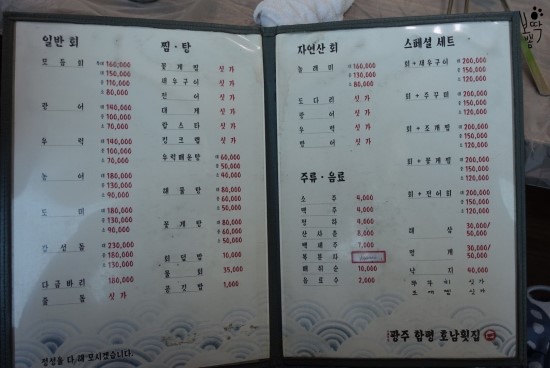 일반 회
모듬회 특 160,000
대 150,000
중 110,000
소 80,000
광어 대 140,000
중 100,000
소 70,000
우럭 대 140,000
중 100,000
소 70,000
농어 대 180,000
중 130,000
소 90,000
도미 대 180,000
중 130,000
소 90,000
감성돔 대 230,000
중 180,000
소 130,000
다금바리 대 180,000
줄돔 싯가
정성을 다해 모시겠습니다.
찜 · 탕
꽃게찜 싯가
새우구이 싯가
민어 싯가
대게 싯가
랍스타 싯가
킹크랩 싯가
우럭매운탕 대 60,000
중 50,000
소 40,000
해물탕 대 80,000
중 60,000
소 50,000
꽃게탕 대 80,000
중 60,000
소 50,000
회덮밥 10,000
물회 35,000
공깃밥 1,000
자연산 회
놀래미 대 160,000
중 130,000
소 80,000
도다리 싯가
광어 싯가
우럭 싯가
방어 싯가
주류 · 음료
소주 4,000
맥주 4,000
청하 4,000
산사춘 8,000
백세주 7,000
복분자
매취순 10,000
음료수 2,000
스페셜 세트
회+새우구이 대 200,000
중 150,000
회+쭈꾸미 대 200,000
중 150,000
회+조개찜 대 200,000
중 150,000
회+꽃게찜 대 200,000
중 150,000
회+전어회 대 200,000
중 150,000
해삼 30,000/
50,000
멍게 30,000/
50,000
낙지 40,000
싯가
싯가
광주 함평 호남횟집